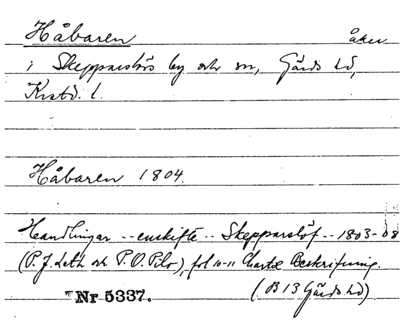 Håbaren åker
i Skepparslövs by och sn, Gärds hd,
Kristd. l.
Håbaren 1804.
Handlingar -- enskifte -- Skepparslöf -- 1803-08
(P. J. Leth och P. O. Pilo), fol 10-11 Charte Beskrifning.
Nr 5337. (B 13 Gärds hd)